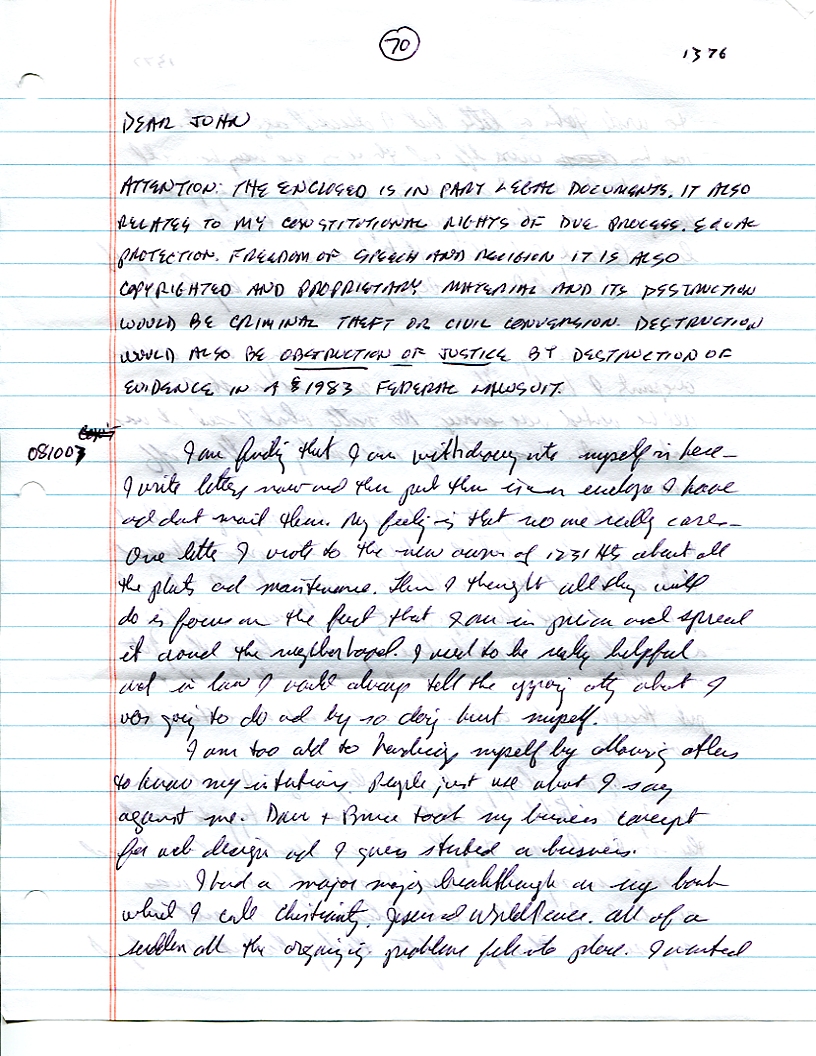 70
1376
DEAR JOHN
ATTENTION: THE ENCLOSED IS IN PART LEGAL DOCUMENTS. IT ALSO
RELATES TO MY CONSTITUTIONAL RIGHTS OF DUE PROCESS. EQUAL
PROTECTION. FREEDOM OF SPEECH AND RELIGION IT IS ALSO
COPYRIGHTED AND PROPRIETARY MATERIAL AND ITS DESTRUCTION
WOULD BE CRIMINAL THEFT OR CIVIL CONVERSION. DESTRUCTION
WOULD ALSO BE OBSTRUCTION OF JUSTICE BY DESTRUCTION OF
EVIDENCE IN A § 1983 FEDERAL LAWSUIT.
081003
I am finding that I am withdrawing into myself in here—
I write letters now and then put them in an envelope I have
and dont mail them. My feeling is that no one really cares—
One letter I wrote to the new owner of 1231 Hts about all
the plants and maintenance. Then I thought all they will
do is focus on the fact that I am in prison and spread
it around the neighborhood. I used to be really helpful
and in law I would always tell the opposing atty what I
was going to do and by so doing hurt myself.
I am too old to handicap myself by allowing others
to know my intentions. People just use what I say
against me. Dave + Bruce took my business concept
for web design and I guess started a business.
I had a major major breakthrough on my book
which I call Christianity, Jesus and World Peace. all of a
sudden all the organizing problems fell into place. I wanted